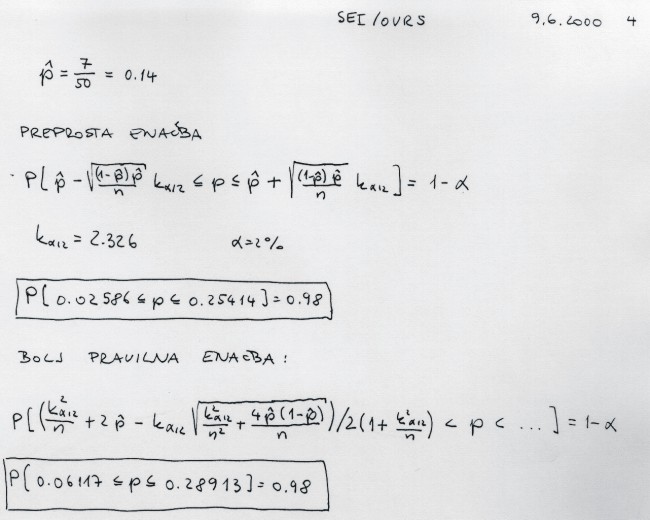 SEI/OVRS 9.6.2000 4
p̂ = 7/50 = 0.14
PREPROSTA ENAČBA
P[ p̂ - √((1-p̂)p̂/n) kα/2 ≤ p ≤ p̂ + √((1-p̂)p̂/n) kα/2 ] = 1-α
kα/2 = 2.326 α=2%
P[ 0.02586 ≤ p ≤ 0.25414 ] = 0.98
BOLJ PRAVILNA ENAČBA:
P[ (k²α/2/n + 2p̂ - kα/2 √(k²α/2/n² + 4p̂(1-p̂)/n)) / 2(1+ k²α/2/n) < p < ... ] = 1-α
P[ 0.06117 ≤ p ≤ 0.28913 ] = 0.98